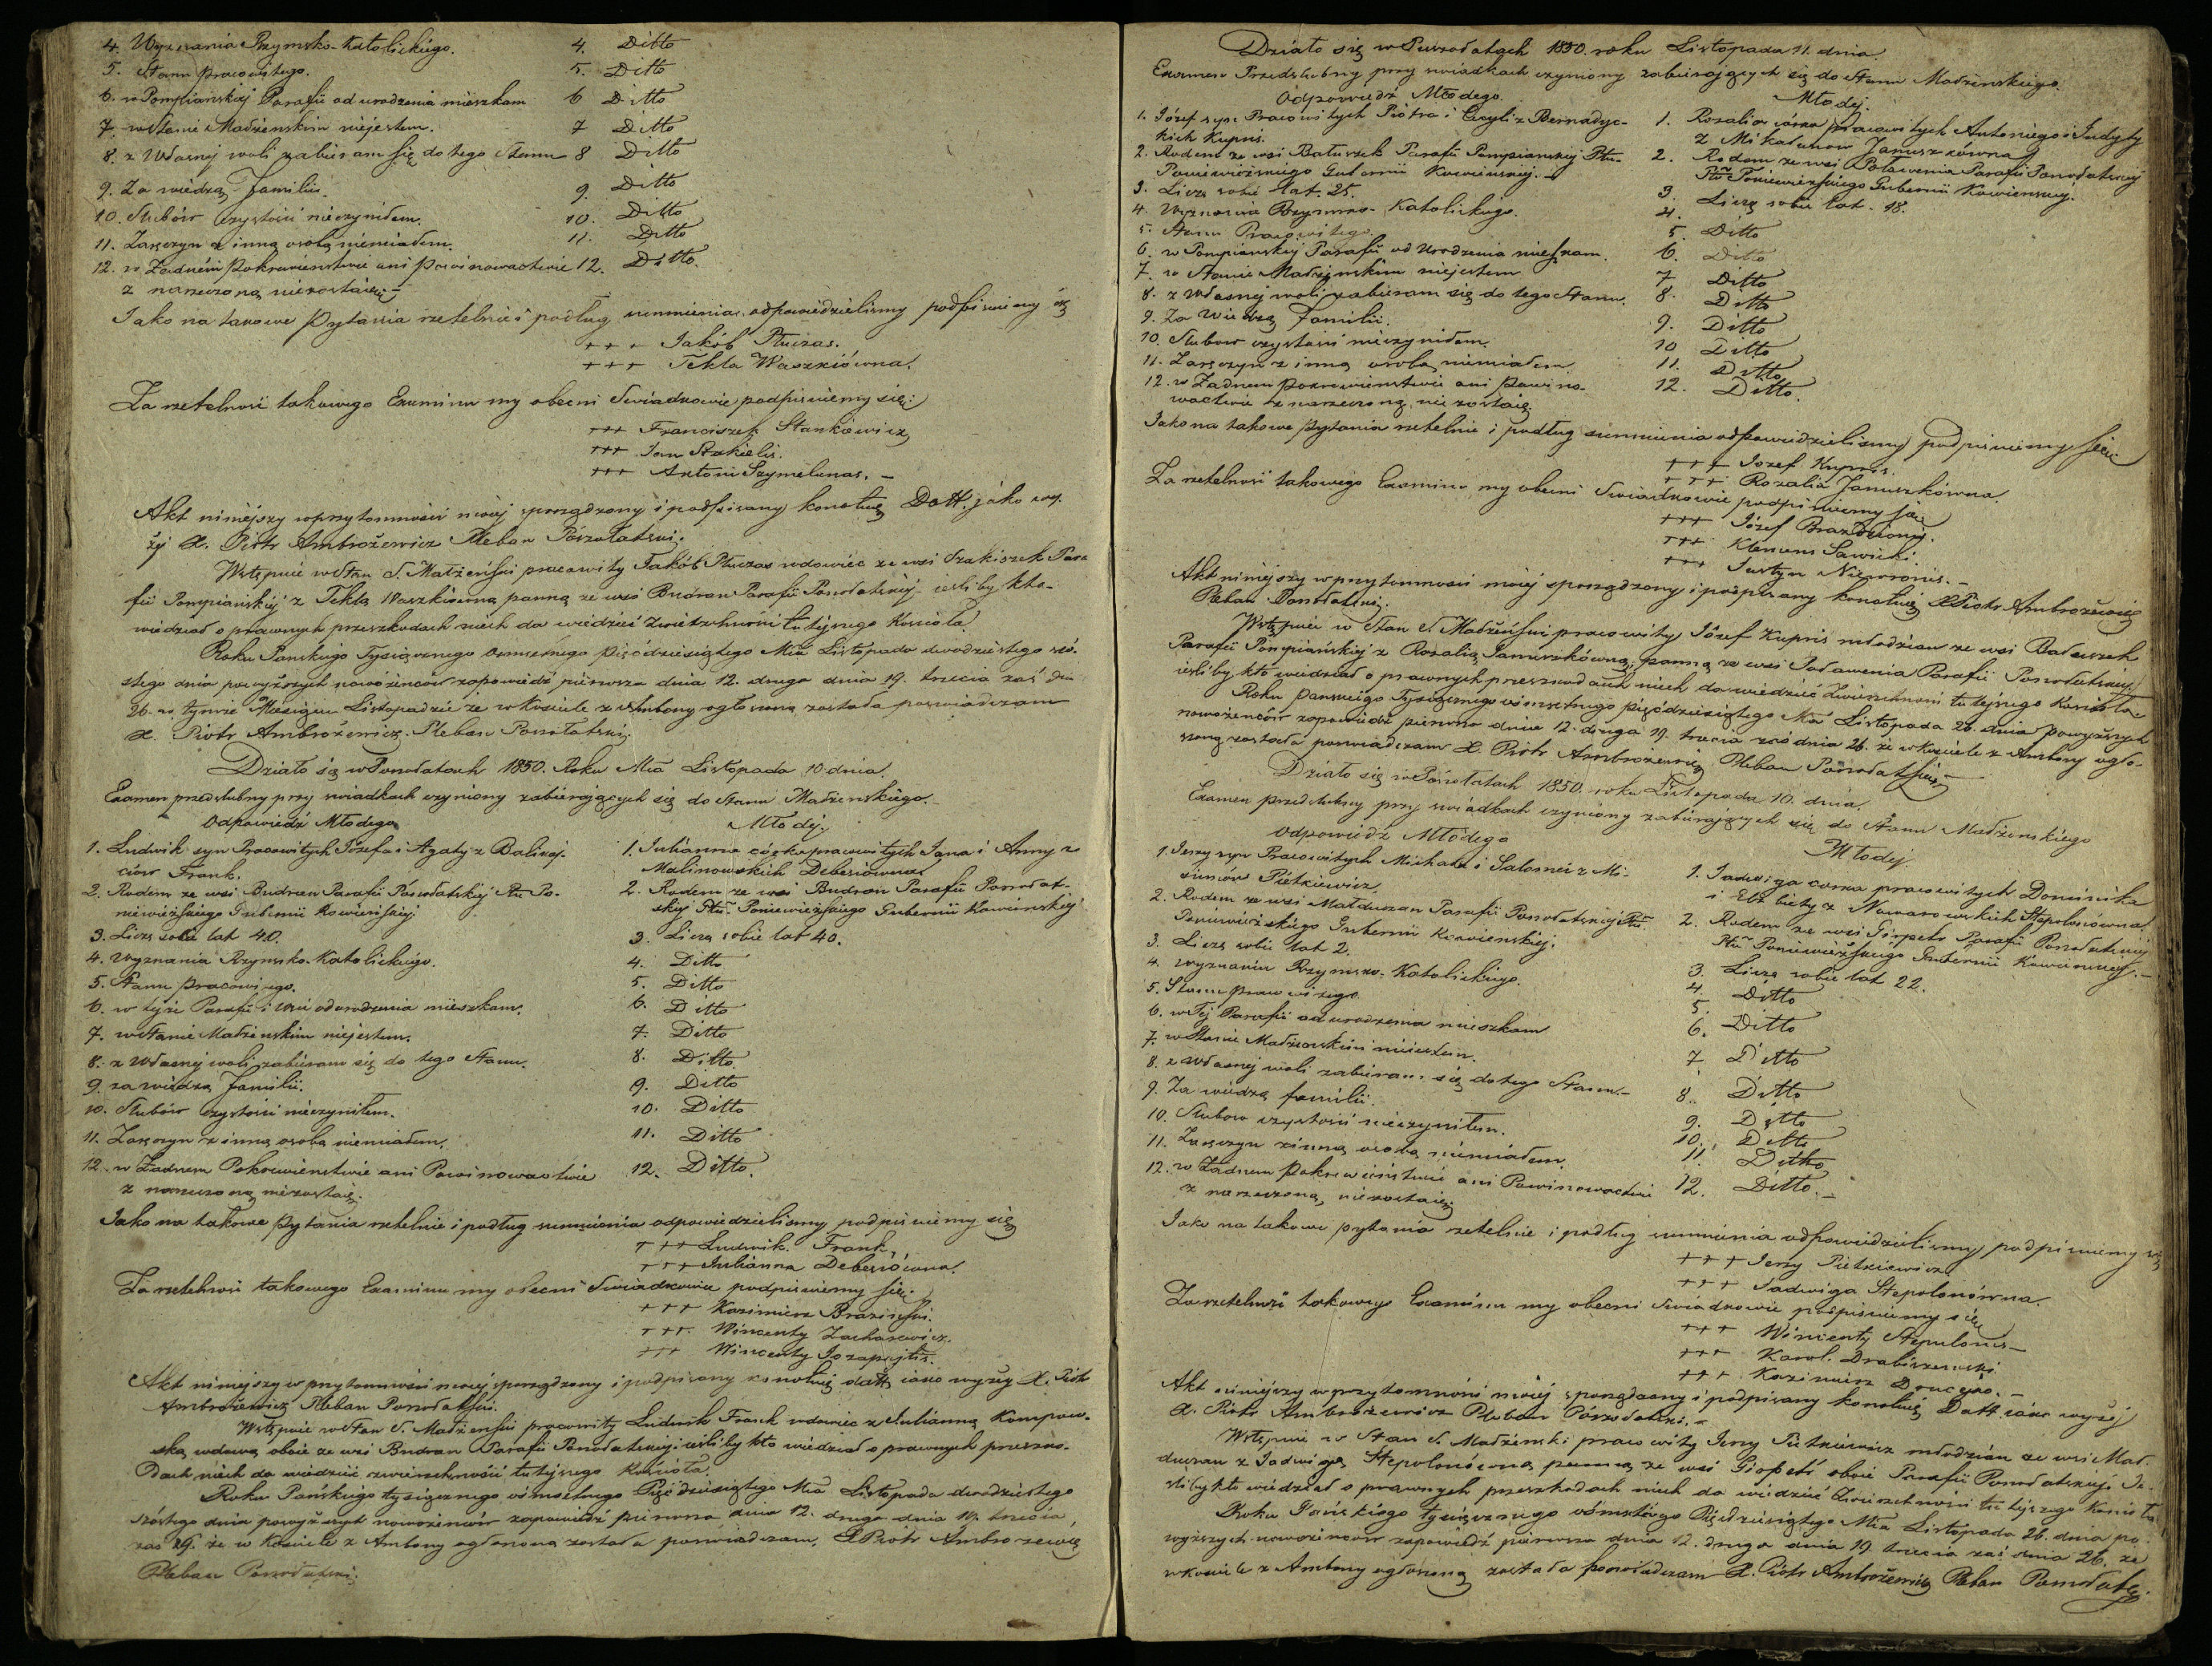 4. Wyznania Rzymsko-Katolickiego. 4. Ditto
5. Stanu pracowitego. 5. Ditto
6. w Pompiańskiej Parafii od urodzenia mieszkam 6 Ditto
7. w Stanie Małżenskim niejestem. 7 Ditto
8. z Własnej woli zabieram się do tego Stanu 8 Ditto
9. Za wiedzą Familii. 9. Ditto
10. Slubów czystości nieczyniłem. 10. Ditto
11. Zaręczyn z inną osobą niemiałem. 11. Ditto
12. w Żadném Pokrewienstwie ani Powinowactwie 12. Ditto.
z narzeczoną niezostaię.
Jako na takowe Pytania rzetelnie i podług sumnienia odpowiedzielismy podpisuiemy się
+++ Jakób Płuczas.
+++ Tekla Waszkiówna.
Za rzetelność takowego Examinu my obecni Swiadkowie podpisuiemy się:
+++ Franciszek Stankiewicz
+++ Jan
+++ Antoni Szymelunas. –
Akt niniejszy w przytomności mojej sporządzony i podpisany konotuię Datt. jako wy-
żej X. Piotr Ambrożewicz Pleban Poszołatski.
Wstępuie w Stan S. Małżeński pracowity Jakób Płuczas wdowiec ze wsi Szakiszek Para
fii Pompiańskiej z Teklą Waszkiówną panną ze wsi Budran Parafii Ponołatskiej iesliby kto-
wiedział o prawnych przeszkodach niech da wiedzieć Zwierzchności tutejszego Kościoła.
Roku Panskiego Tysiącznego Osmsetnego Pięćdziesiątego Mca Listopada dwudziestego szó-
stego dnia powyższych nowożeńców zapowiedź pierwsza dnia 12. druga dnia 19. trzecia zaś dnia
26. w tymże Miesiącu Listopadzie że w kościele z Ambony ogłoszona została poswiadczam
X. Piotr Ambrożewicz Pleban Ponołatski.
Działo się w Ponołatach 1850. Roku Mca Listopada 10 dnia.
Examen przedslubny przy swiadkach czyniony zabierających się do Stanu Małżenskiego.
Odpowiedź Młodego Młodéj.
1. Ludwik syn Pracowitych Józefa i Agaty z Balicej- 1. Julianna córka pracowitych Jana i Anny z
ciów Frank. Malinowskich Debesiówna
2. Rodem ze wsi Budran Parafii Ponołatskiej Ptu Po- 2. Rodem ze wsi Budran Parafii Ponołat-
niewieżskiego Gubernii Kowieńskiej. skiej Ptu Poniewieżskiego Gubernii Kowienskiej
3. Liczę sobie lat 40. 3. Liczę sobie lat 40.
4. Wyznania Rzymsko-Katolickiego. 4. Ditto
5. Stanu Pracowitego. 5. Ditto
6. w tejże Parafii i wsi od urodzenia mieszkam. 6. Ditto
7. w Stanie Małżenskim niejestem. 7. Ditto
8. z Własnej woli zabieram się do tego Stanu. 8. Ditto.
9. za wiedzą Familii. 9. Ditto
10. Slubów czystości nieczyniłem. 10. Ditto
11. Zaręczyn z inną osobą niemiałem. 11. Ditto
12. w Żadnem Pokrewienstwie ani Powinowactwie 12. Ditto.
z narzeczoną niezostaię.
Jako na takowe Pytania rzetelnie i podług sumnienia odpowiedzielismy podpisuiemy się
+++ Ludwik Frank.
+++ Julianna Debesiówna.
Za rzetelność takowego Examinu my obecni Swiadkowie podpisuiemy się:
+++ Kazimierz
+++ Wincenty Zacharewicz.
+++ Wincenty Jozapajtis.
Akt niniejszy w przytomności mojej sporządzony i podpisany konotuię datt iako wyżej X. Piotr
Ambrożewicz Pleban Ponołatski.
Wstępuie w Stan S. Małżenski pracowity Ludwik Frank wdowiec z Julianną Kompow-
ską wdową oboie ze wsi Budran Parafii Ponołatskiej iesliby kto wiedział o prawnych przeszko-
dach niech da wiedzieć zwierzchności tutejszego Kościoła.
Roku Pańskiego tysiącznego ósmsetnego Pięćdziesiątego Mca Listopada dwudziestego
szóstego dnia powyższych nowożeńców zapowiedź pierwsza dnia 12. druga dnia 19. trzecia
zaś 26. że w Kosciele z Ambony ogłoszona została poswiadczam. X. Piotr Ambrożewicz
Pleban Ponołatski.
Działo się w Ponołatach 1850. roku Listopada 11. dnia.
Examen Przedslubny przy swiadkach czyniony zabierających się do Stanu Małżenskiego.
Odpowiedź Młodego. Młodej.
1. Józef syn Pracowitych Piotra i Cecylii z Bernadyc- 1. Rozalia córka pracowitych Antoniego i Judyty
kich Kupris. z Mikałunow Januszkówna
2. Rodem ze wsi Bałuszek Parafii Pompianskiej Ptu- 2. Rodem ze wsi Poławenia Parafii Ponołatskiej
Poniewieżskiego Gubernii Kowienskiej. – Ptu Poniewieżskiego Gubernii Kowienskiej.
3. Liczę sobie lat. 25. 3. Liczę sobie lat. 18.
4. Wyznania Rzymsko-Katolickiego. 4.
5. Stanu Pracowitego. 5. Ditto
6. w Pompianskiej Parafii od Urodzenia mieszkam. 6. Ditto
7. w Stanie Małżenskim niejestem 7 Ditto
8. z Własnej woli zabieram się do tego Stanu. 8. Ditto
9. Za Wiedzą Familii. 9. Ditto
10. Slubow czystości nieczyniłem. 10 Ditto
11. Zaręczyn z inną osobą niemiałem. 11. Ditto
12. w Żadnem Pokrewienstwie ani Powino- 12. Ditto.
wactwie z narzeczoną niezostaię.
Jako na takowe Pytania rzetelnie i podług sumnienia odpowiedzielismy podpisuiemy się
+++ Jozef Kupris.
+++ Rozalia Januszkówna.
Za rzetelność takowego Examinu my obecni Swiadkowie podpisuiemy się
+++ Józef Brazdzionis.
+++ Klemens Sawicki.
+++ Justyn Niewronis. –
Akt niniejszy w przytomności mojej sporządzony i podpisany konotuię X Piotr Ambrożewicz
Pleban Ponołatski.
Wstępuie w Stan S. Małżeński pracowity Józef Kupris młodzian ze wsi Bałuszek
Parafii Pompiańskiej z Rozalią Januszkówną panną ze wsi Poławenia Parafii Ponołatskiej
iesliby kto wiedział o prawnych przeszkodach niech da wiedzieć Zwierzchności tutejszego Kościoła
Roku Panskiego Tysiącznego ósmsetnego pięćdziesiątego Mca Listopada 26. dnia powyższych
nowożeńców zapowiedź pierwsza dnia 12. druga 19. trzecia zaś dnia 26. że w kościele z Ambony ogło-
szoną została poswiadczam X. Piotr Ambrożewicz Pleban Ponołatski. –
Działo się w Ponołatach 1850. roku Listopada 10. dnia.
Examen przedslubny przy swiadkach czyniony zabierających się do Stanu Małżenskiego
Odpowiedź Młodego Młodej.
1. Jerzy syn Pracowitych Michała i Salomei z Mi- 1. Jadwiga corka pracowitych Dominika
siunów Pietkiewicz. i Elżbiety z Nawarowskich Stepolonówna.
2. Rodem ze wsi Małduszan Parafii Ponołatskiej Ptu 2. Rodem ze wsi Girpetr Parafii Ponołatskiej
Poniewieżskiego Gubernii Kowienskiej. Ptu Poniewieżskiego Gubernii Kowienskiej. –
3. Liczę sobie lat 2. 3. Liczę sobie lat 22.
4. Wyznania Rzymsko-Katolickiego. 4. Ditto
5. Stanu pracowitego. 5.
6. w Tej Parafii od urodzenia mieszkam 6. Ditto
7. w Stanie Małżenskim niejestem. 7. Ditto
8. z Własnej woli zabieram się do tego Stanu. – 8. Ditto
9. Za wiedzą familii. 9. Ditto
10. Slubow czystości nieczyniłem. 10. Ditto
11. Zaręczyn z inną osobą niemiałem. 11. Ditto
12. w Żadnem Pokrewieństwie ani Powinowactwie 12. Ditto. –
z narzeczoną, niezostaię.
Jako na takowe pytania rzetelnie i podług sumnienia odpowiedzielismy podpisuiemy się
+++ Jerzy Pietkiewicz.
+++ Jadwiga Stepolonówna.
Za rzetelność takowego Examinu my obecni Swiadkowie podpisuiemy się
+++ Wincenty Stepulonis –
+++ Karol Drabiszewski
+++ Kazimierz
Akt niniejszy w przytomności mojej sporządzony i podpisany konotuię Datt iako wyżej
X. Piotr Ambrożewicz Pleban Ponołatski. –
Wstępuie w Stan S. Małżenski pracowity Jerzy Pietkiewicz młodzian ze wsi Mał-
duszan z Jadwigą Stepolonówną panną ze wsi Girpetr oboie Parafii Ponołatskiej Je-
sliby kto wiedział o prawnych przeszkodach niech da wiedzieć Zwierzchności tutejszego Kościoła
Roku Pańskiego tysiącznego ósmsetnego Pięćdziesiątego Mca Listopada 26. dnia po-
wyższych nowożeńców zapowiedź pierwsza dnia 12. druga dnia 19. trzecia zaś dnia 26. że
w kościele z Ambony ogłoszoną została poswiadczam X. Piotr Ambrożewicz Pleban Ponołatski.